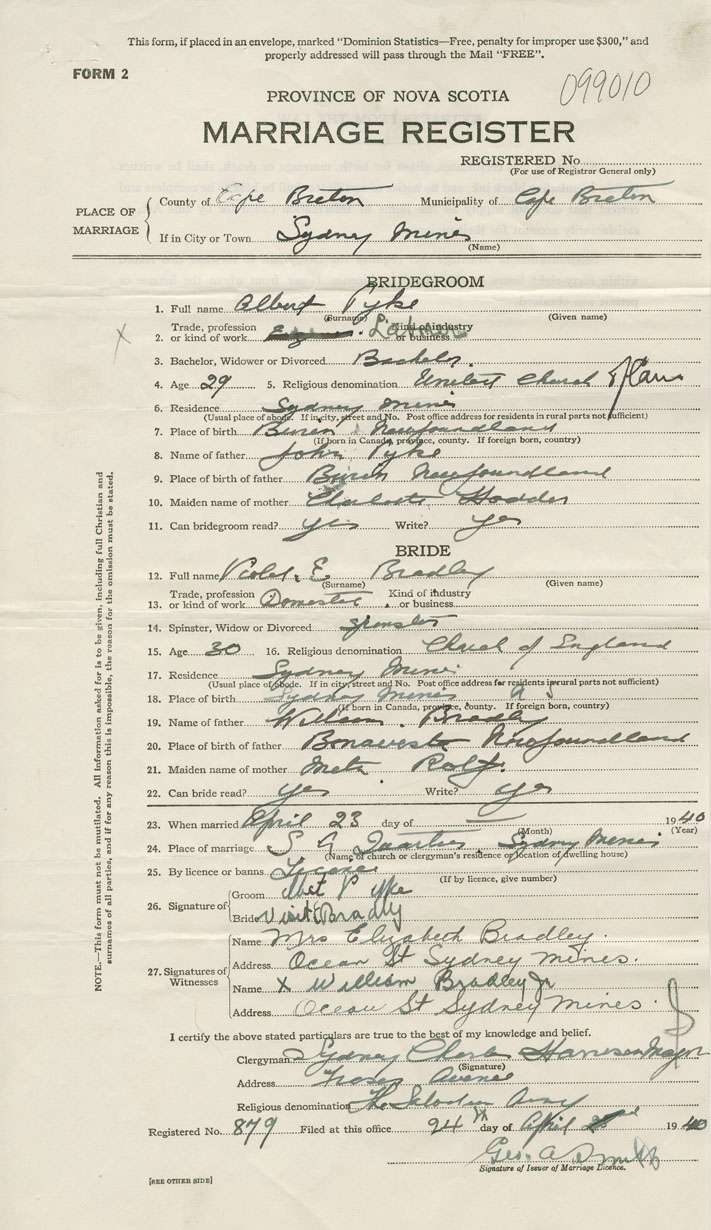 This form, if placed in an envelope, marked “Dominion Statistics—Free, penalty for improper use $300,” and
properly addressed will pass through the Mail “FREE”.
FORM 2
099010
PROVINCE OF NOVA SCOTIA
MARRIAGE REGISTER
REGISTERED No.
(For use of Registrar General only)
PLACE OF MARRIAGE
County of Cape Breton Municipality of Cape Breton
If in City or Town Sydney Mines
(Name)
BRIDEGROOM
1. Full name Albert Pyke
(Surname) (Given name)
2. Trade, profession or kind of work Labourer Kind of industry or business
3. Bachelor, Widower or Divorced Bachelor
4. Age 29 5. Religious denomination United Church
6. Residence Sydney Mines
(Usual place of abode. If in city, street and No. Post office address for residents in rural parts not sufficient)
7. Place of birth Burin Newfoundland
(If born in Canada, province, county. If foreign born, country)
8. Name of father John Pyke
9. Place of birth of father Burin Newfoundland
10. Maiden name of mother Charlotte Hodder
11. Can bridegroom read? yes Write? yes
BRIDE
12. Full name Violet E Bradley
(Surname) (Given name)
13. Trade, profession or kind of work Domestic Kind of industry or business
14. Spinster, Widow or Divorced Spinster
15. Age 30 16. Religious denomination Church of England
17. Residence Sydney Mines
(Usual place of abode. If in city, street and No. Post office address for residents in rural parts not sufficient)
18. Place of birth Sydney Mines N S
(If born in Canada, province, county. If foreign born, country)
19. Name of father William Bradley
20. Place of birth of father Bonavista Newfoundland
21. Maiden name of mother Meta
22. Can bride read? yes Write? yes
23. When married April 23 day of 1940
(Month) (Year)
24. Place of marriage S A Quarters, Sydney Mines
(Name of church or clergyman's residence or location of dwelling house)
25. By licence or banns License
(If by licence, give number)
26. Signature of
Groom Albet Pyke
Bride Violet Bradly
27. Signatures of Witnesses
Name Mrs Elizabeth Bradley.
Address Ocean St Sydney Mines.
Name X William Bradley Jr
Address Ocean St Sydney Mines.
I certify the above stated particulars are true to the best of my knowledge and belief.
Clergyman Sydney Charles Harrison Major
(Signature)
Address Fraser Avenue
Religious denomination The Salvation Army
Registered No. 879 Filed at this office 24th day of April 1940
Geo. A
Signature of Issuer of Marriage Licence.
[SEE OTHER SIDE]
NOTE.—This form must not be mutilated. All information asked for is to be given, including full Christian and
surnames of all parties, and if for any reason this is impossible, the reason for the omission must be stated.